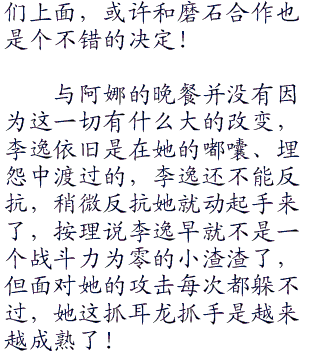 们上面，或许和磨石合作也
是个不错的决定！
与阿娜的晚餐并没有因
为这一切有什么大的改变，
李逸依旧是在她的嘟囔、埋
怨中渡过的，李逸还不能反
抗，稍微反抗她就动起手来
了，按理说李逸早就不是一
个战斗力为零的小渣渣了，
但面对她的攻击每次都躲不
过，她这抓耳龙抓手是越来
越成熟了！